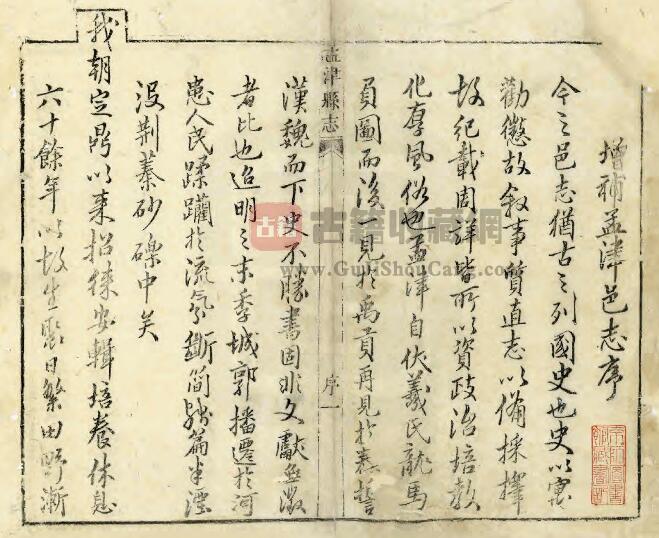 增補孟津邑志序
今之邑志猶古之列國史也史以寓
勸懲故叙事質直志以備採擇
故紀載周詳皆所以資政治培教
化厚風俗也孟津自伏羲氏龍馬
負圖而後一見於禹貢再見於泰誓
孟津縣志
序一
漢魏而下史不勝書固非文獻無徵
者比也迨明之末季城郭播遷於河
患人民蹂躪於流氛斷簡殘篇半湮
沒荆蓁砂礫中矣
我朝定鼎以来招徠安輯培養休息
六十餘年以故生聚日繁田野漸
古籍
古籍收藏網
www.GuJiShouCang.com